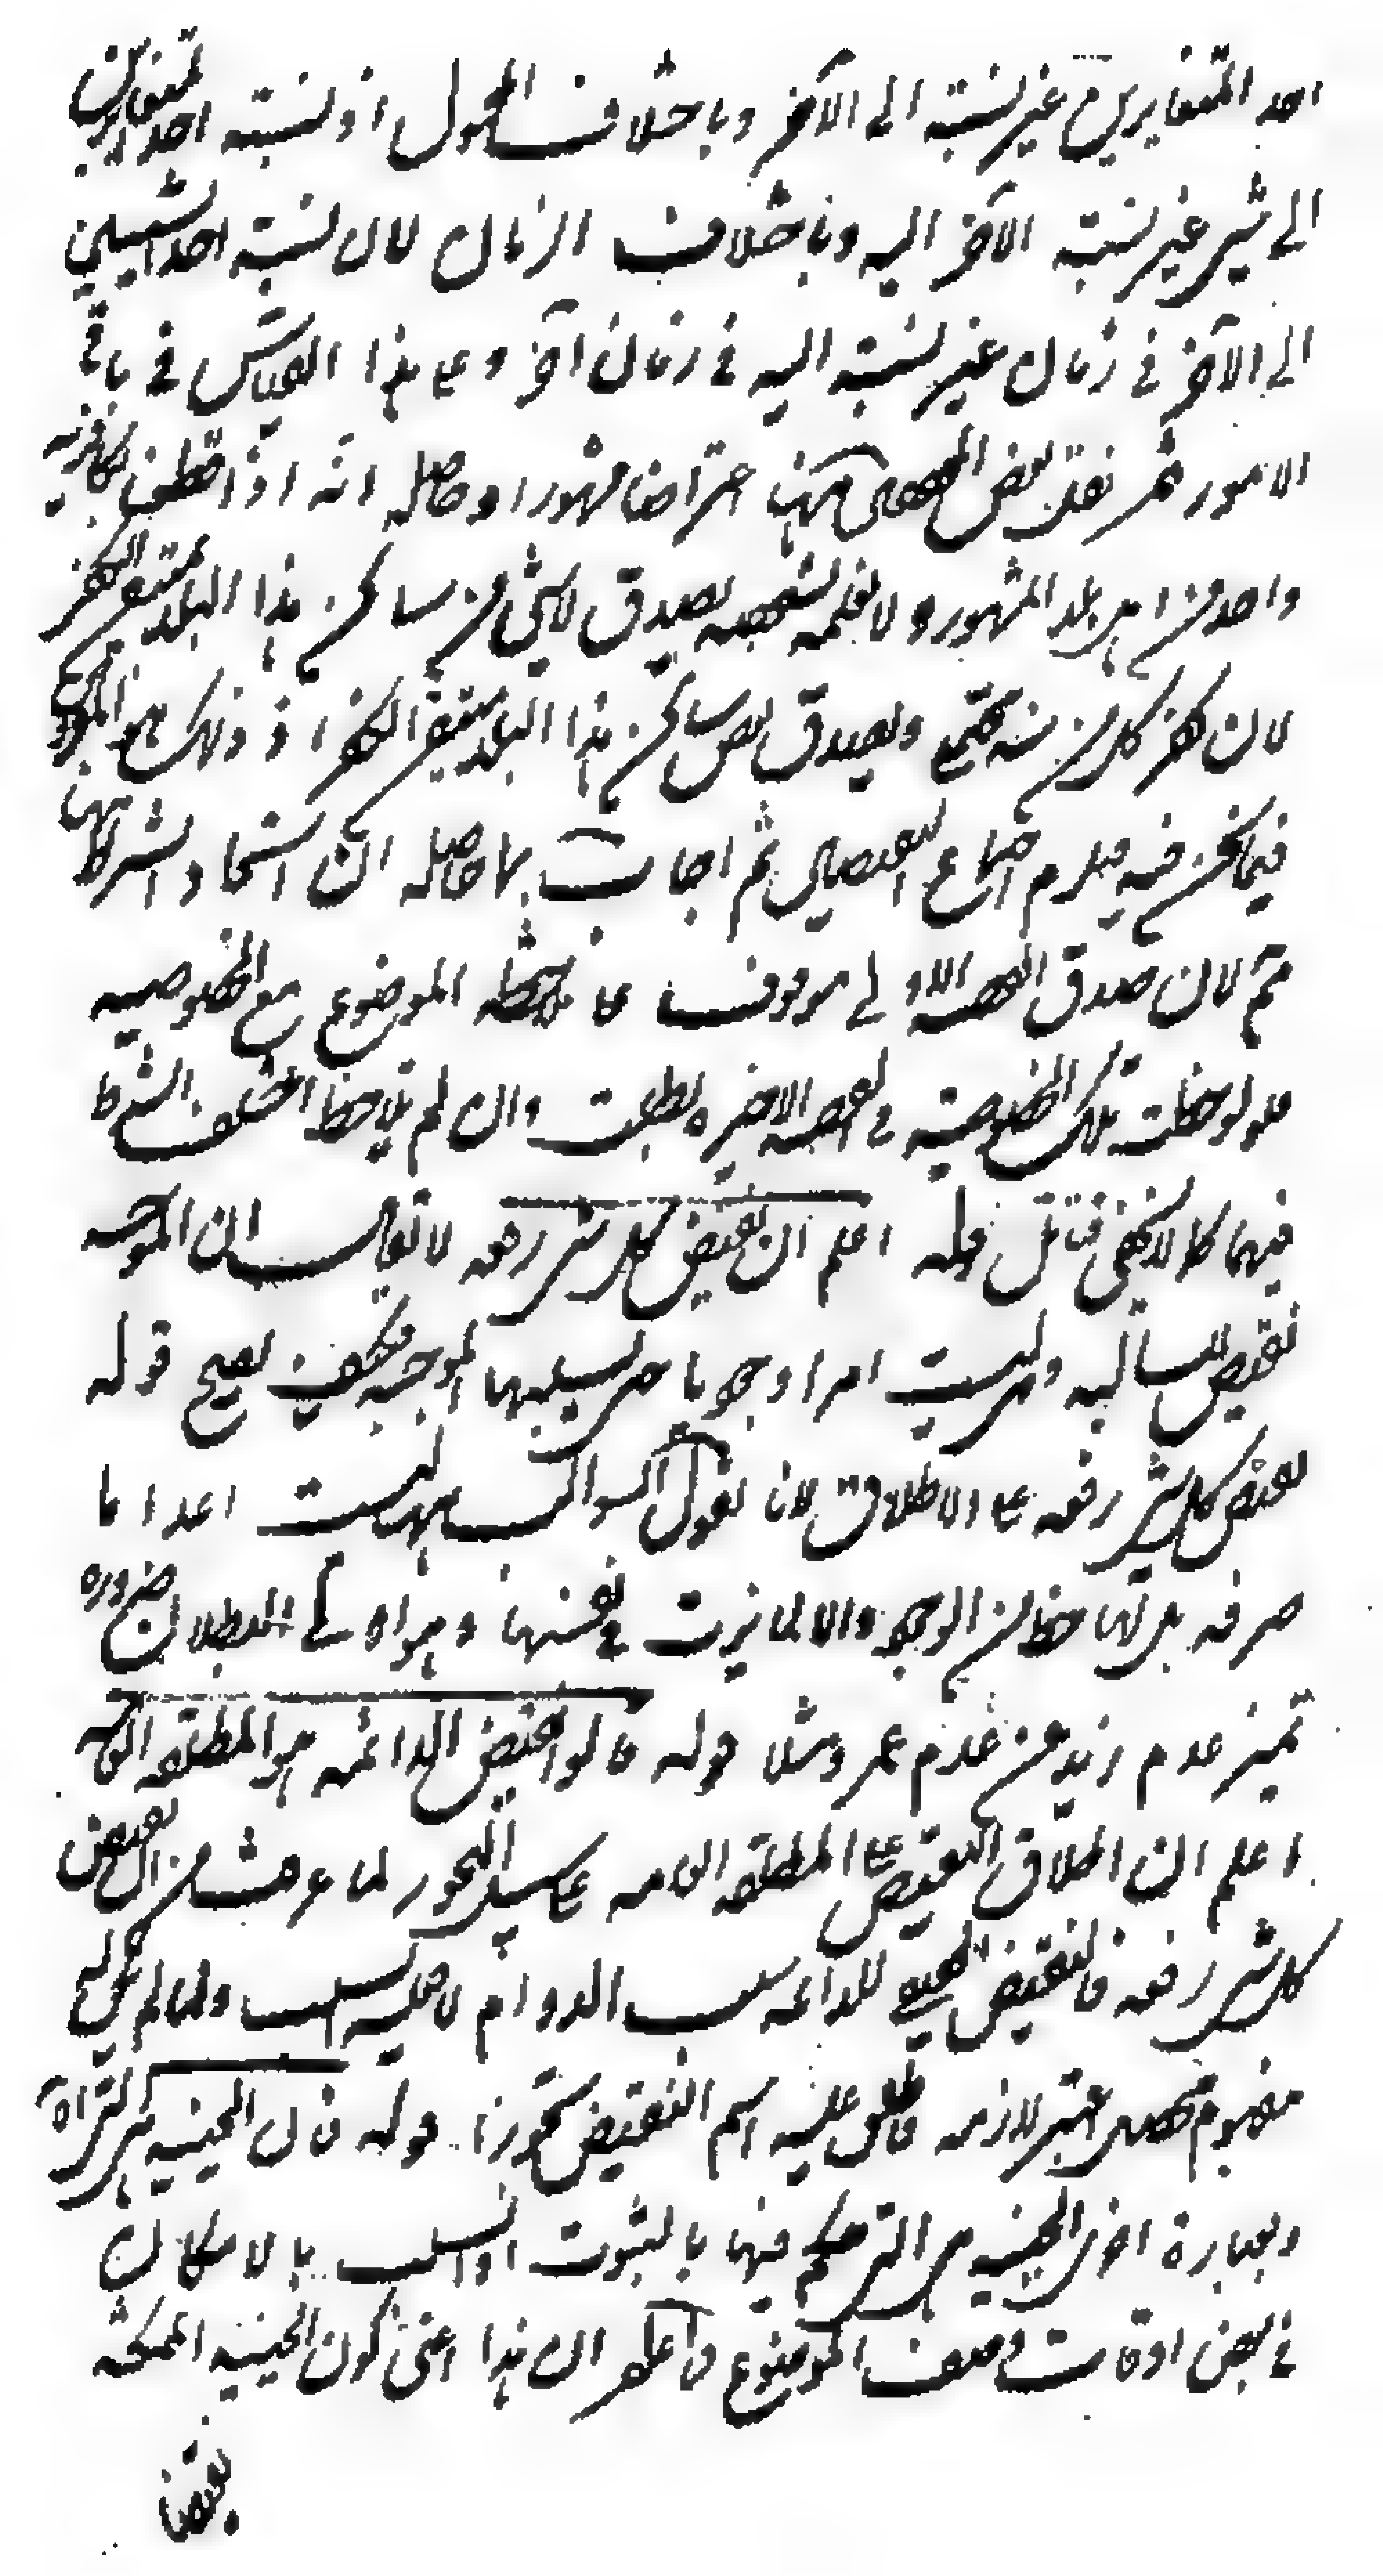 احد المتغايرين غير نسبته الى الآخر وباختلاف المحمول اذ نسبة احد المتغايرين
الى شيء غير نسبة الآخر اليه وباختلاف الزمان لان نسبة احد الشيئين
الى الآخر في زمان غير نسبته اليه في زمان آخر وعلى هذا القياس في باقي
الامور ثم نقل بعض المحققين ههنا اعتراضا مشهورا وحاصله انه اذا قطعن بكفر
واحد من اهل بلد المشهور ولا نعلمه بشخصه يصدق لا شيء من ساكن هذا البلد متيقن الكفر
لان كفر كل منه محتمل ويصدق بعض ساكن هذا البلد متيقن الكفر اذ ذلك هو
فيما نحن فيه فيلزم اجتماع النقيضين ثم اجاب بما حاصله ان اتحاد الشرط ههنا
ثم لان صدق القضية الاولى موقوف على ملاحظة الموضوع مع الخصوصية
فلو لوحظت تلك الخصوصية في القضية الاخيرة بطلت وان لم تلاحظ اختلف الشرط
فيهما كما لا يخفى فتأمل قوله اعلم ان نقيض كل شيء رفعه لا يقال ان الموجبة
نقيض للسالبة وليست امرا وجوديا حتى سلبها الموجبة فكيف يصح قوله
نقيض كل شيء رفعه على الاطلاق لانا نقول السوالب ليست اعداما
صرفة بل لها حظ من الوجود والا لما تميزت في نفسها وهو اول البطلان ضرورة
تميز عدم زيد عن عدم عمرو مثلا قوله قالوا نقيض الدائمة هو المطلقة العامة
اعلم ان اطلاق النقيض على المطلقة العامة على سبيل التجوز لما عرفت من ان نقيض
كل شيء رفعه فالنقيض الحقيقي للدائمة سلب الدوام لا فعلية السلب ولما لم يكن له
مفهوم محصل اعتبر لازمه فاطلق عليه اسم النقيض تجوزا قوله فان الحينية هي التي آه
وبعبارة اخرى الحينية هي التي حكم فيها بالثبوت او السلب بالامكان
في بعض اوقات وصف الموضوع فاعلم ان هذا اعنى كون الحينية الممكنة
نقيضا